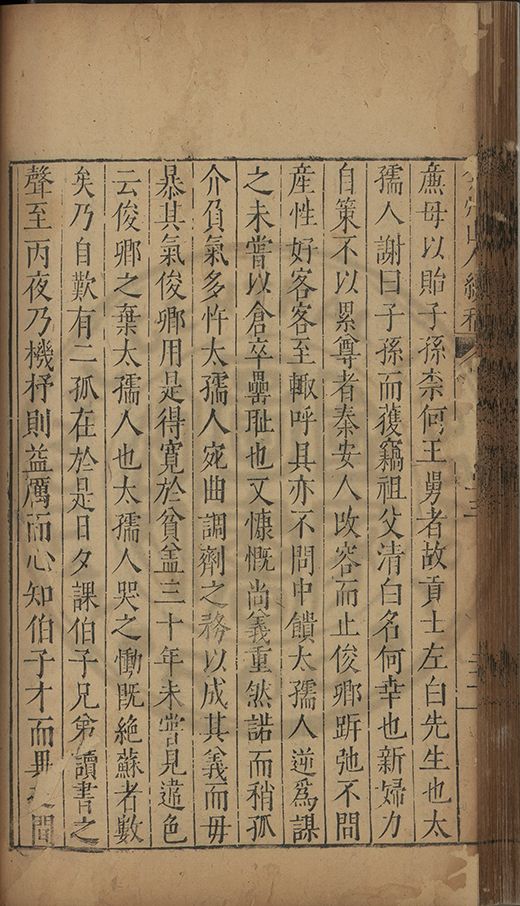 山人續稿
廡母以貽子孫柰何王舅者故貢士左白先生也太
孺人謝曰子孫而獲竊祖父清白名何幸也新婦力
自策不以累尊者泰安人改容而止俊卿跅弛不問
産性好客客至輙呼具亦不問中饋太孺人逆爲謀
之未嘗以倉卒罍耻也又慷慨尚義重然諾而稍孤
介負氣多忤太孺人宛曲調劑之務以成其義而毋
暴其氣俊卿用是得寬於貧葢三十年未嘗見違色
云俊卿之棄太孺人也太孺人哭之慟旣絶蘇者數
矣乃自歎有二孤在於是日夕課伯子兄弟讀書之
聲至丙夜乃機杼則益厲而心知伯子才而毋間